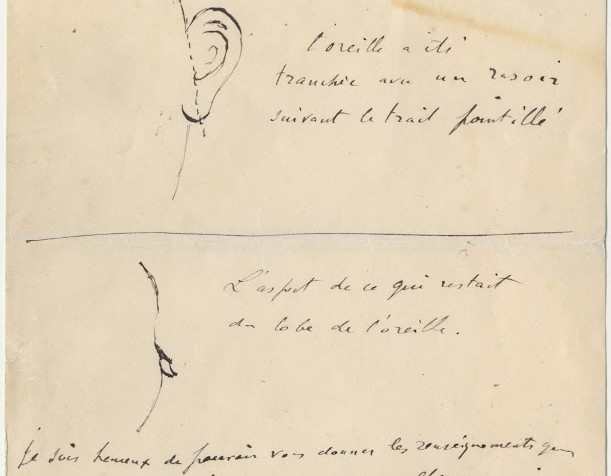 l'oreille a été
tranchée avec un rasoir
suivant le trait pointillé
L'aspect de ce qui restait
du lobe de l'oreille.
Je suis heureux de pouvoir vous donner les renseignements que